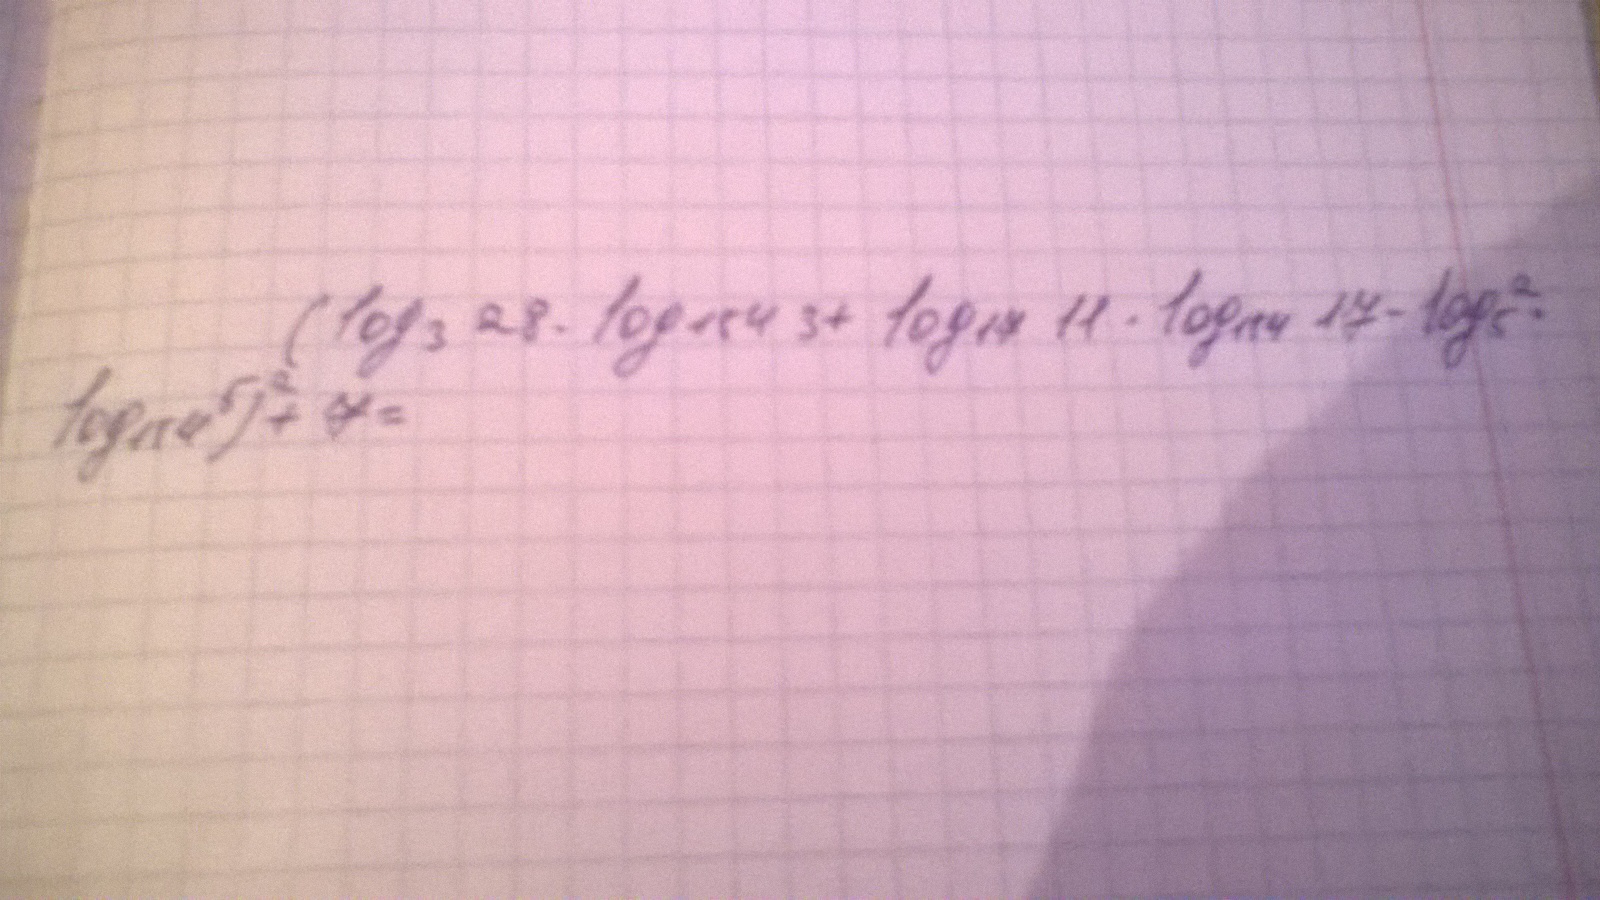 (log₃ 28 · log₁₅₄ 3 + log₁₇ 11 · log₁₅₄ 17 - log₅ 2 ·
log₁₅₄ 5)² + 7 =